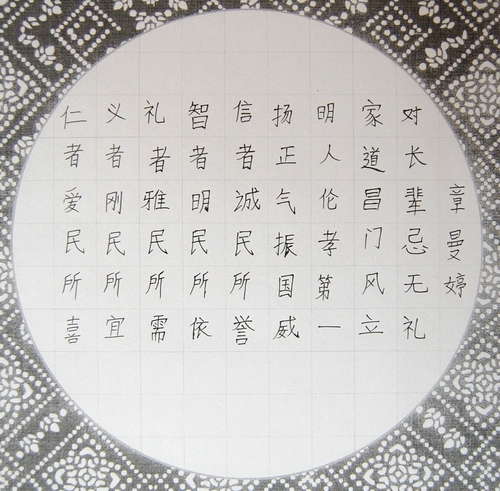 仁者爱民所喜
义者刚民所宜
礼者雅民所需
智者明民所依
信者诚民所誉
扬正气振国威
明人伦孝第一
家道昌门风立
对长辈忌无礼
章曼婷